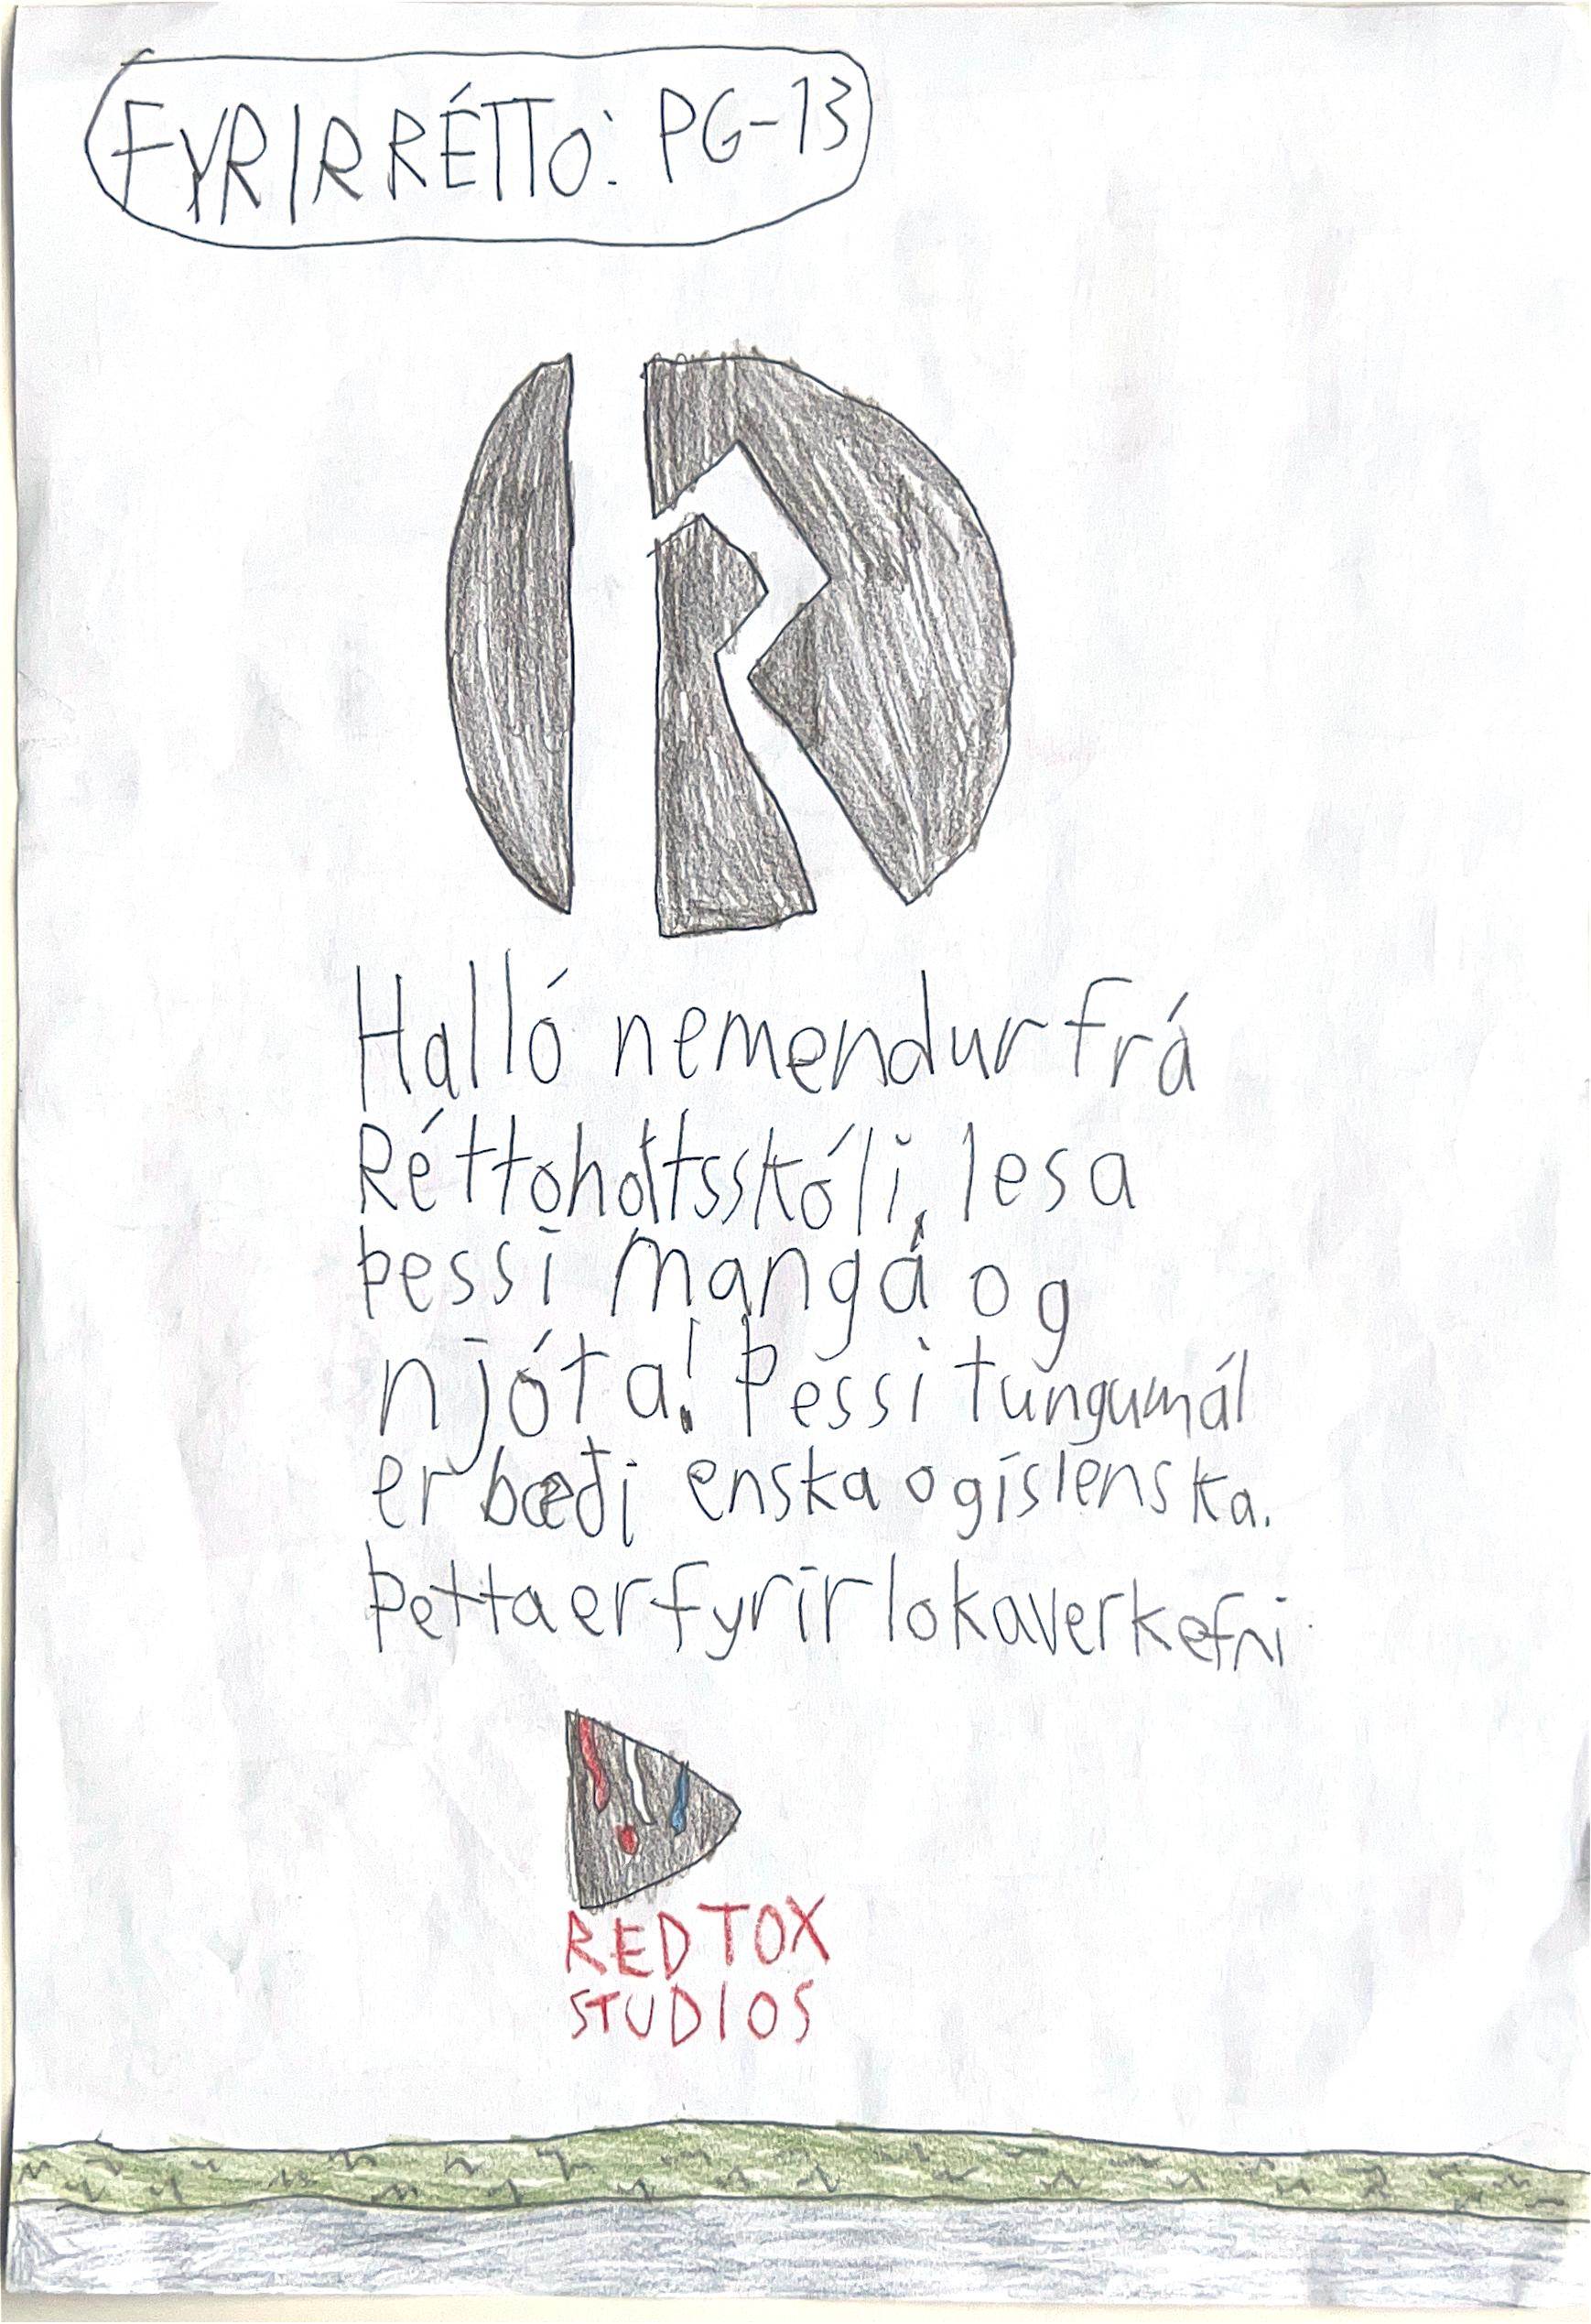 FYRIR RÉTTO: PG-13
Halló nemendur frá
Réttoholtsskóli, lesa
þessi manga og
njóta! Þessi tungumál
er bæði enska og íslenska.
Þetta er fyrir lokaverkefni
RED TOX
STUDIOS